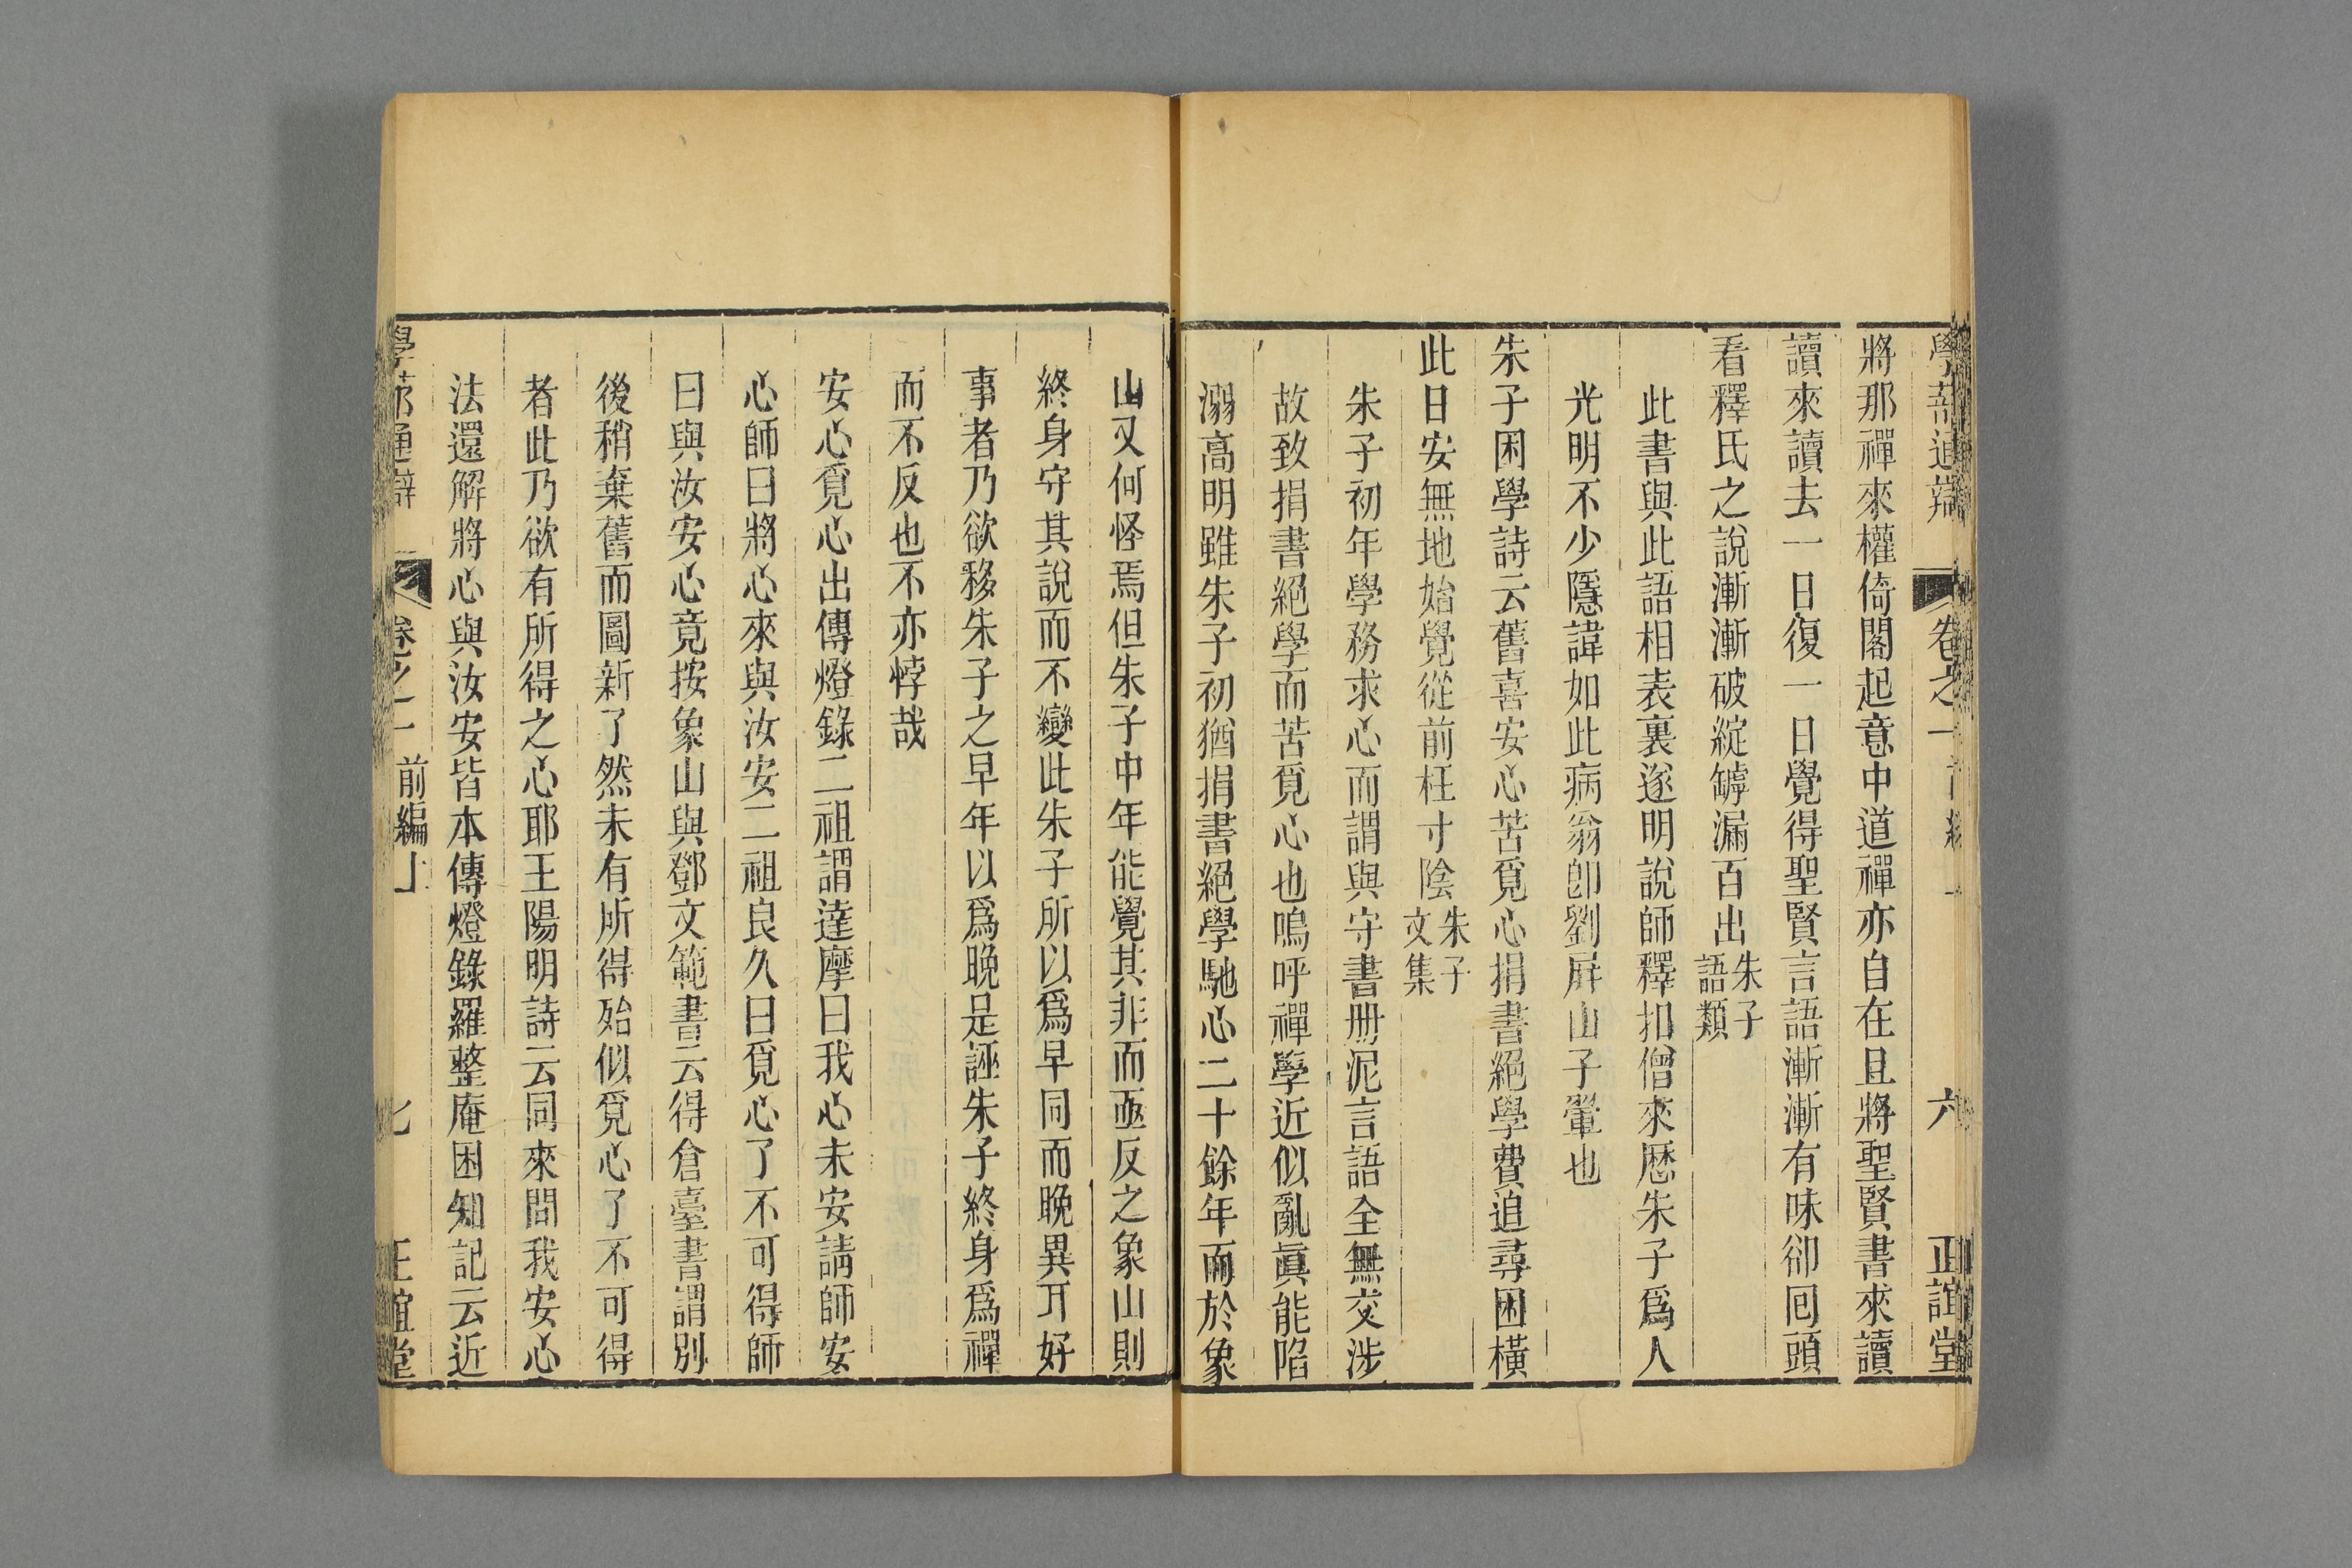 學蔀通辯 卷之一 前編上 六 正誼堂
將那禪來權倚閣起意中道禪亦自在且將聖賢書來讀
讀來讀去一日復一日覺得聖賢言語漸漸有味卻回頭
看釋氏之說漸漸破綻罅漏百出朱子語類
此書與此語相表裏遂明說師釋扣僧來歷朱子爲人
光明不少隱諱如此病翁卽劉屛山子翬也
朱子困學詩云舊喜安心苦覓心捐書絕學費追尋困橫
此日安無地始覺從前枉寸陰朱子文集
朱子初年學務求心而謂與守書册泥言語全無交涉
故致捐書絕學而苦覓心也嗚呼禪學近似亂眞能陷
溺高明雖朱子初猶捐書絕學馳心二十餘年而於象
山又何怪焉但朱子中年能覺其非而亟反之象山則
終身守其說而不變此朱子所以爲早同而晚異丌好
事者乃欲移朱子之早年以爲晚是誣朱子終身爲禪
而不反也不亦悖哉
安心覓心出傳燈錄二祖謂達摩曰我心未安請師安
心師曰將心來與汝安二祖良久曰覓心了不可得師
曰與汝安心竟按象山與鄧文範書云得倉臺書謂別
後稍棄舊而圖新了然未有所得殆似覓心了不可得
者此乃欲有所得之心耶王陽明詩云同來問我安心
法還解將心與汝安皆本傳燈錄羅整庵困知記云近
學蔀通辯 卷之一 前編上 七 正誼堂